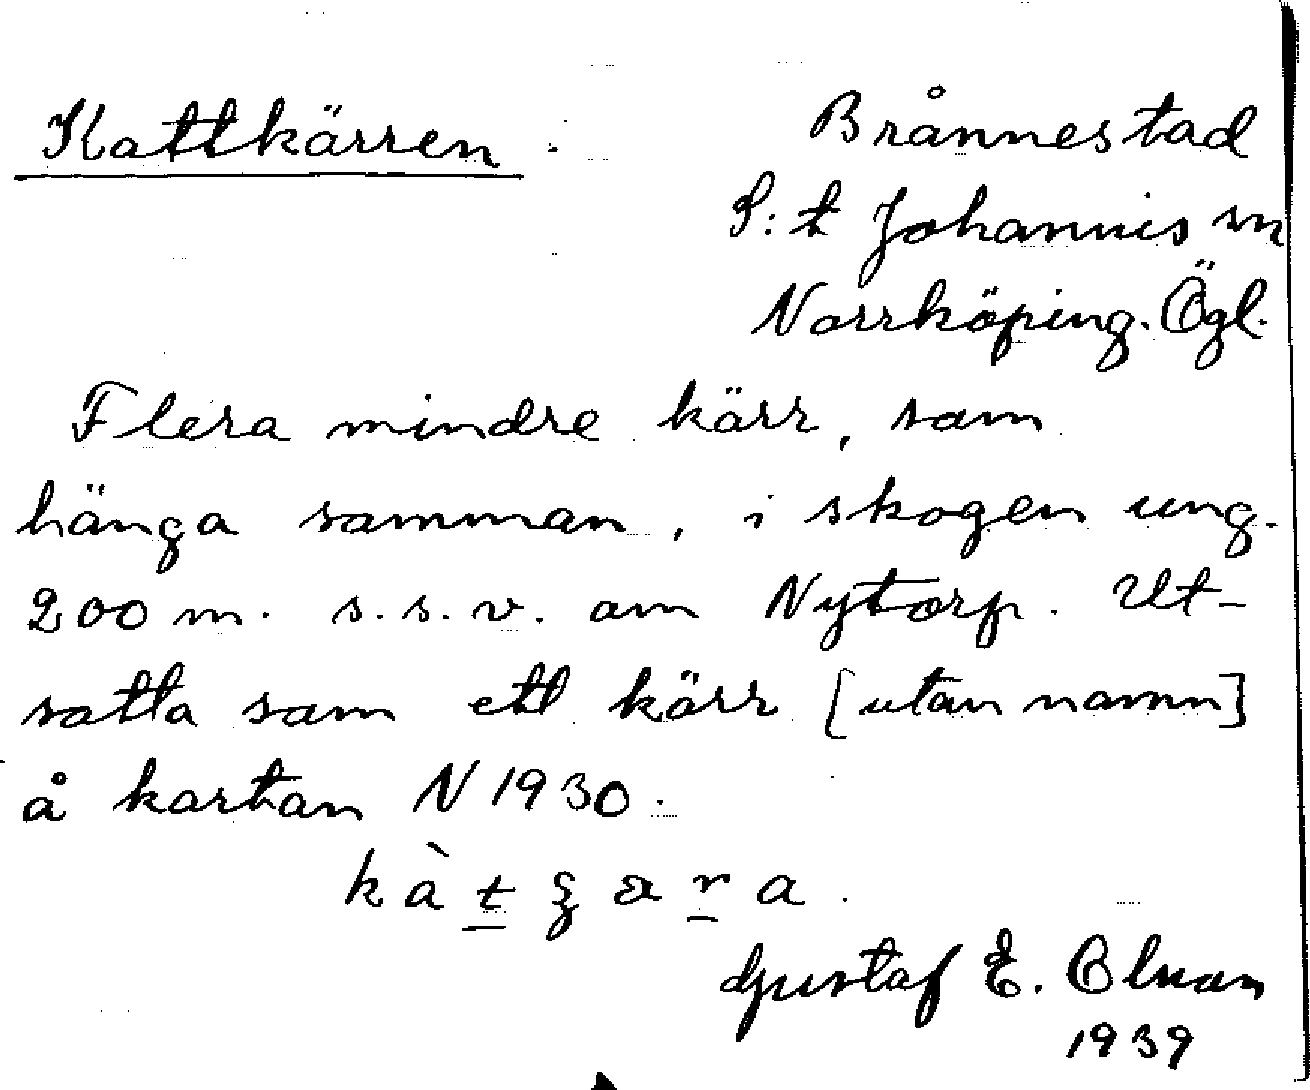 Kattkärren.
Brånnestad
S:t Johannis sn
Norrköping. Ögl.
Flera mindre kärr, som
hänga samman, i skogen ung.
200 m. s.s.v. om Nytorp. Ut-
satta som ett kärr [utan namn]
å kartan N 1930.
kàt ʂæra.
Gustaf E. Olson
1939